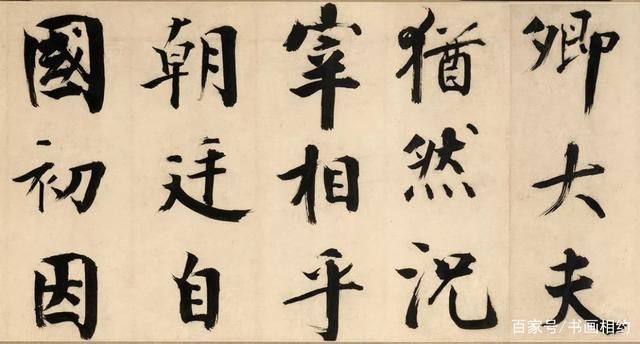 卿大夫
猶然況
宰相乎
朝廷自
國初因
百家号/书画相约